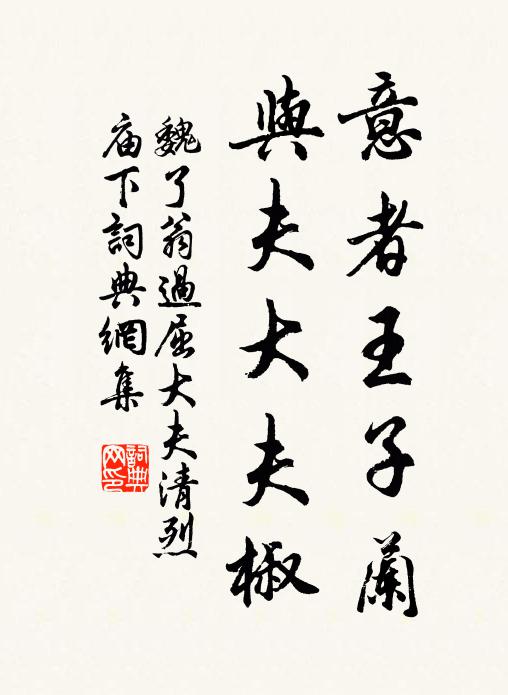 意者王子蘭
與夫大夫椒
魏了翁過屈大夫清烈
庙下詞典網集
詞典
网印